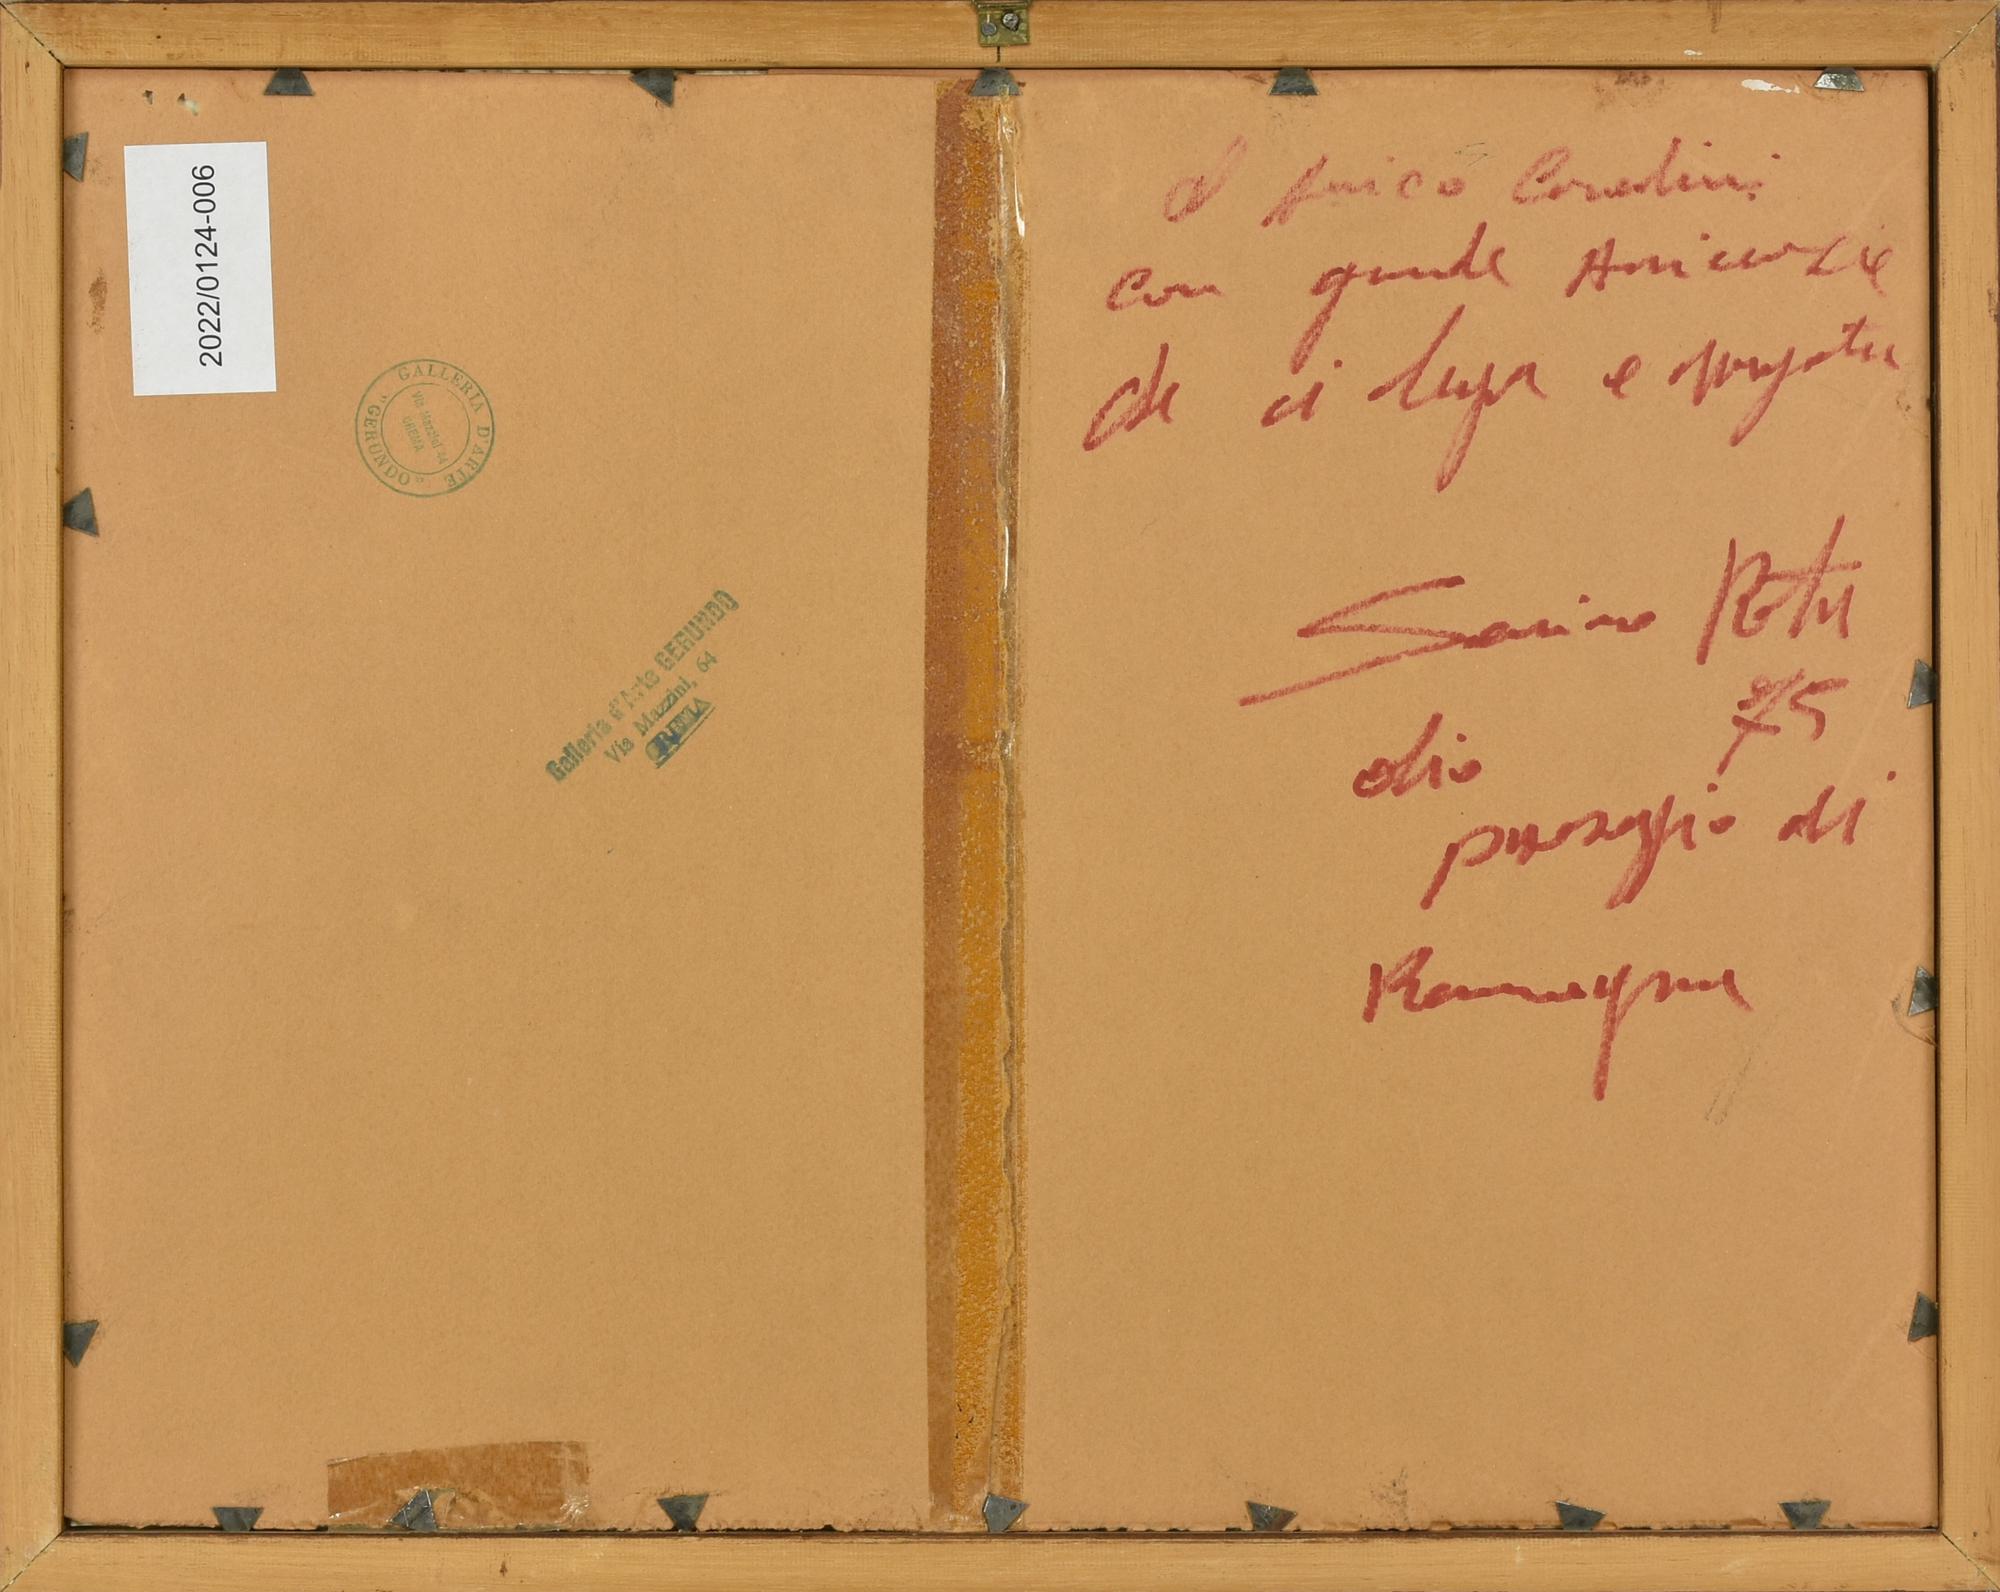 2022/0124-006
GALLERIA D'ARTE "GERUNDO"
Via Mazzini 64
CREMA
Galleria d'Arte GERUNDO
Via Mazzini, 64
CREMA
Al Amico
con grande Amicizia
che ci lega e
Rota
75
olio
paesaggio di
Romagna